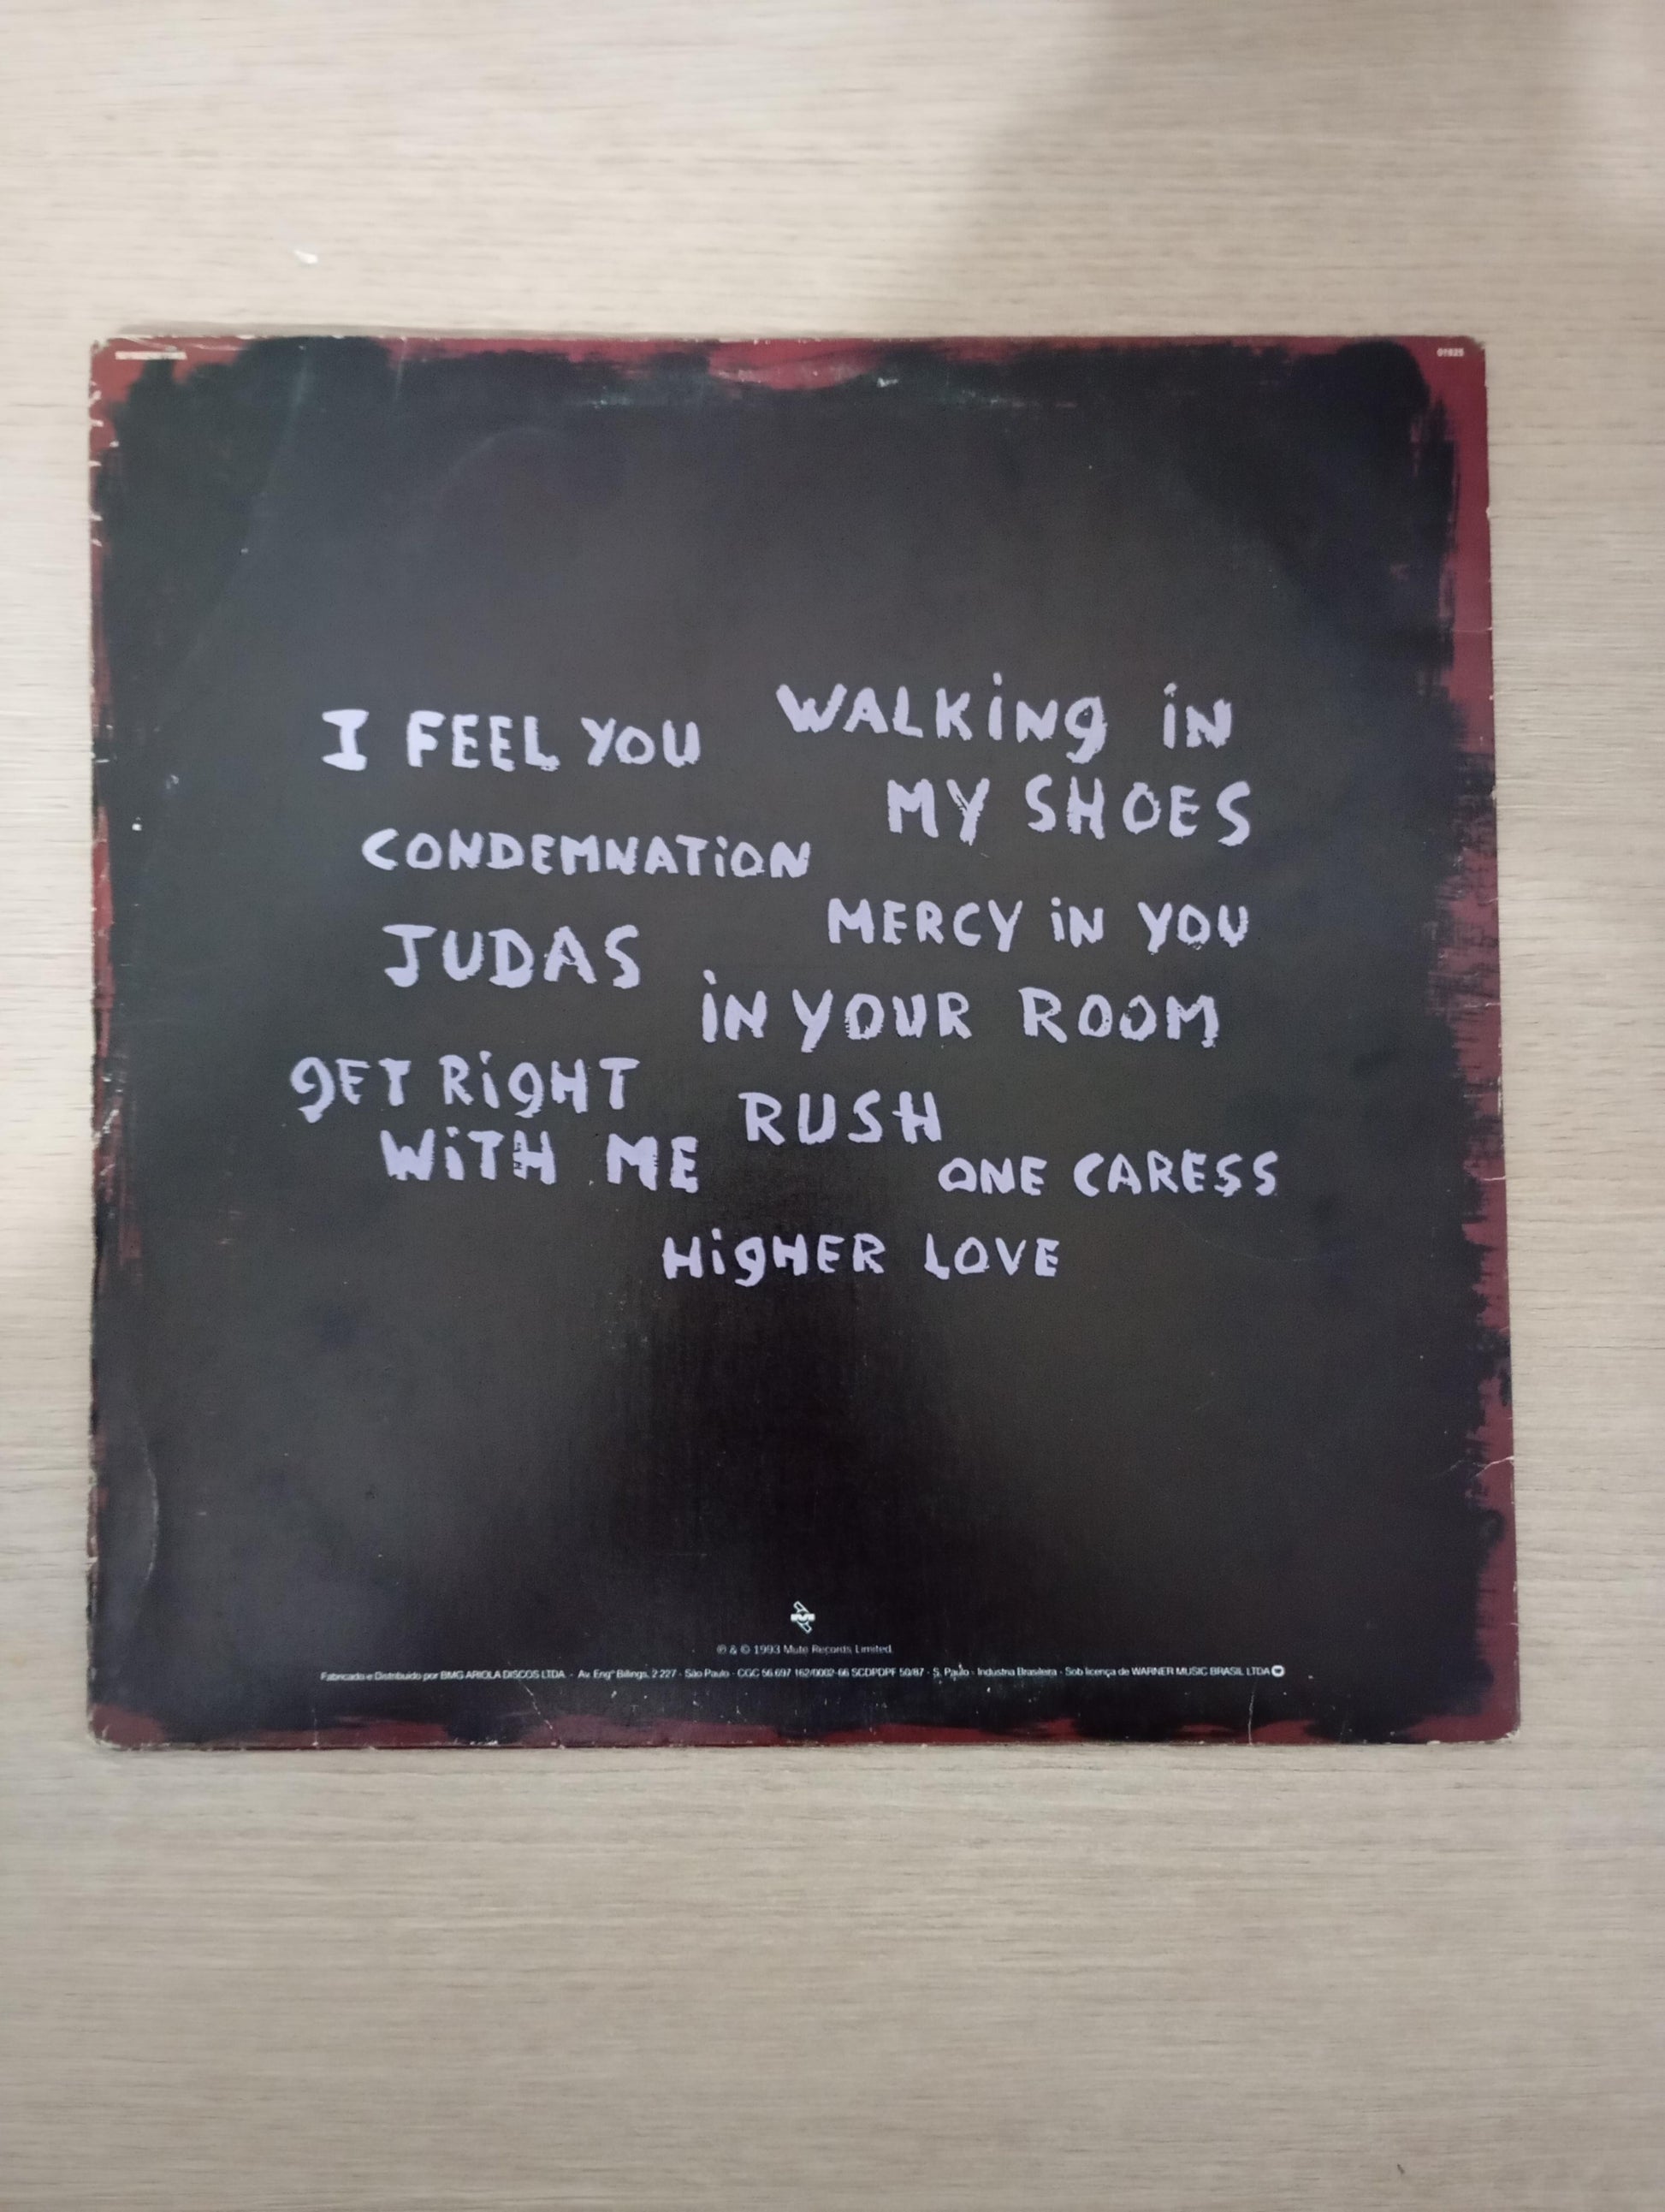 01825
I FEEL YOU
WALKiNg iN
MY SHOES
CONDEMNATiON
MERCY iN YOU
JUDAS
iN YOUR ROOM
gET RigHT
WiTH ME
RUSH
ONE CARESS
HigHER LOVE
℗ & © 1993 Mute Records Limited.
Fabricado e Distribuido por BMG ARIOLA DISCOS LTDA. - Av. Engº Billings, 2.227 - São Paulo - CGC 56.697.162/0002-66 SCDPDPF 50/87 - S. Paulo - Industria Brasileira - Sob licença de WARNER MUSIC BRASIL LTDA